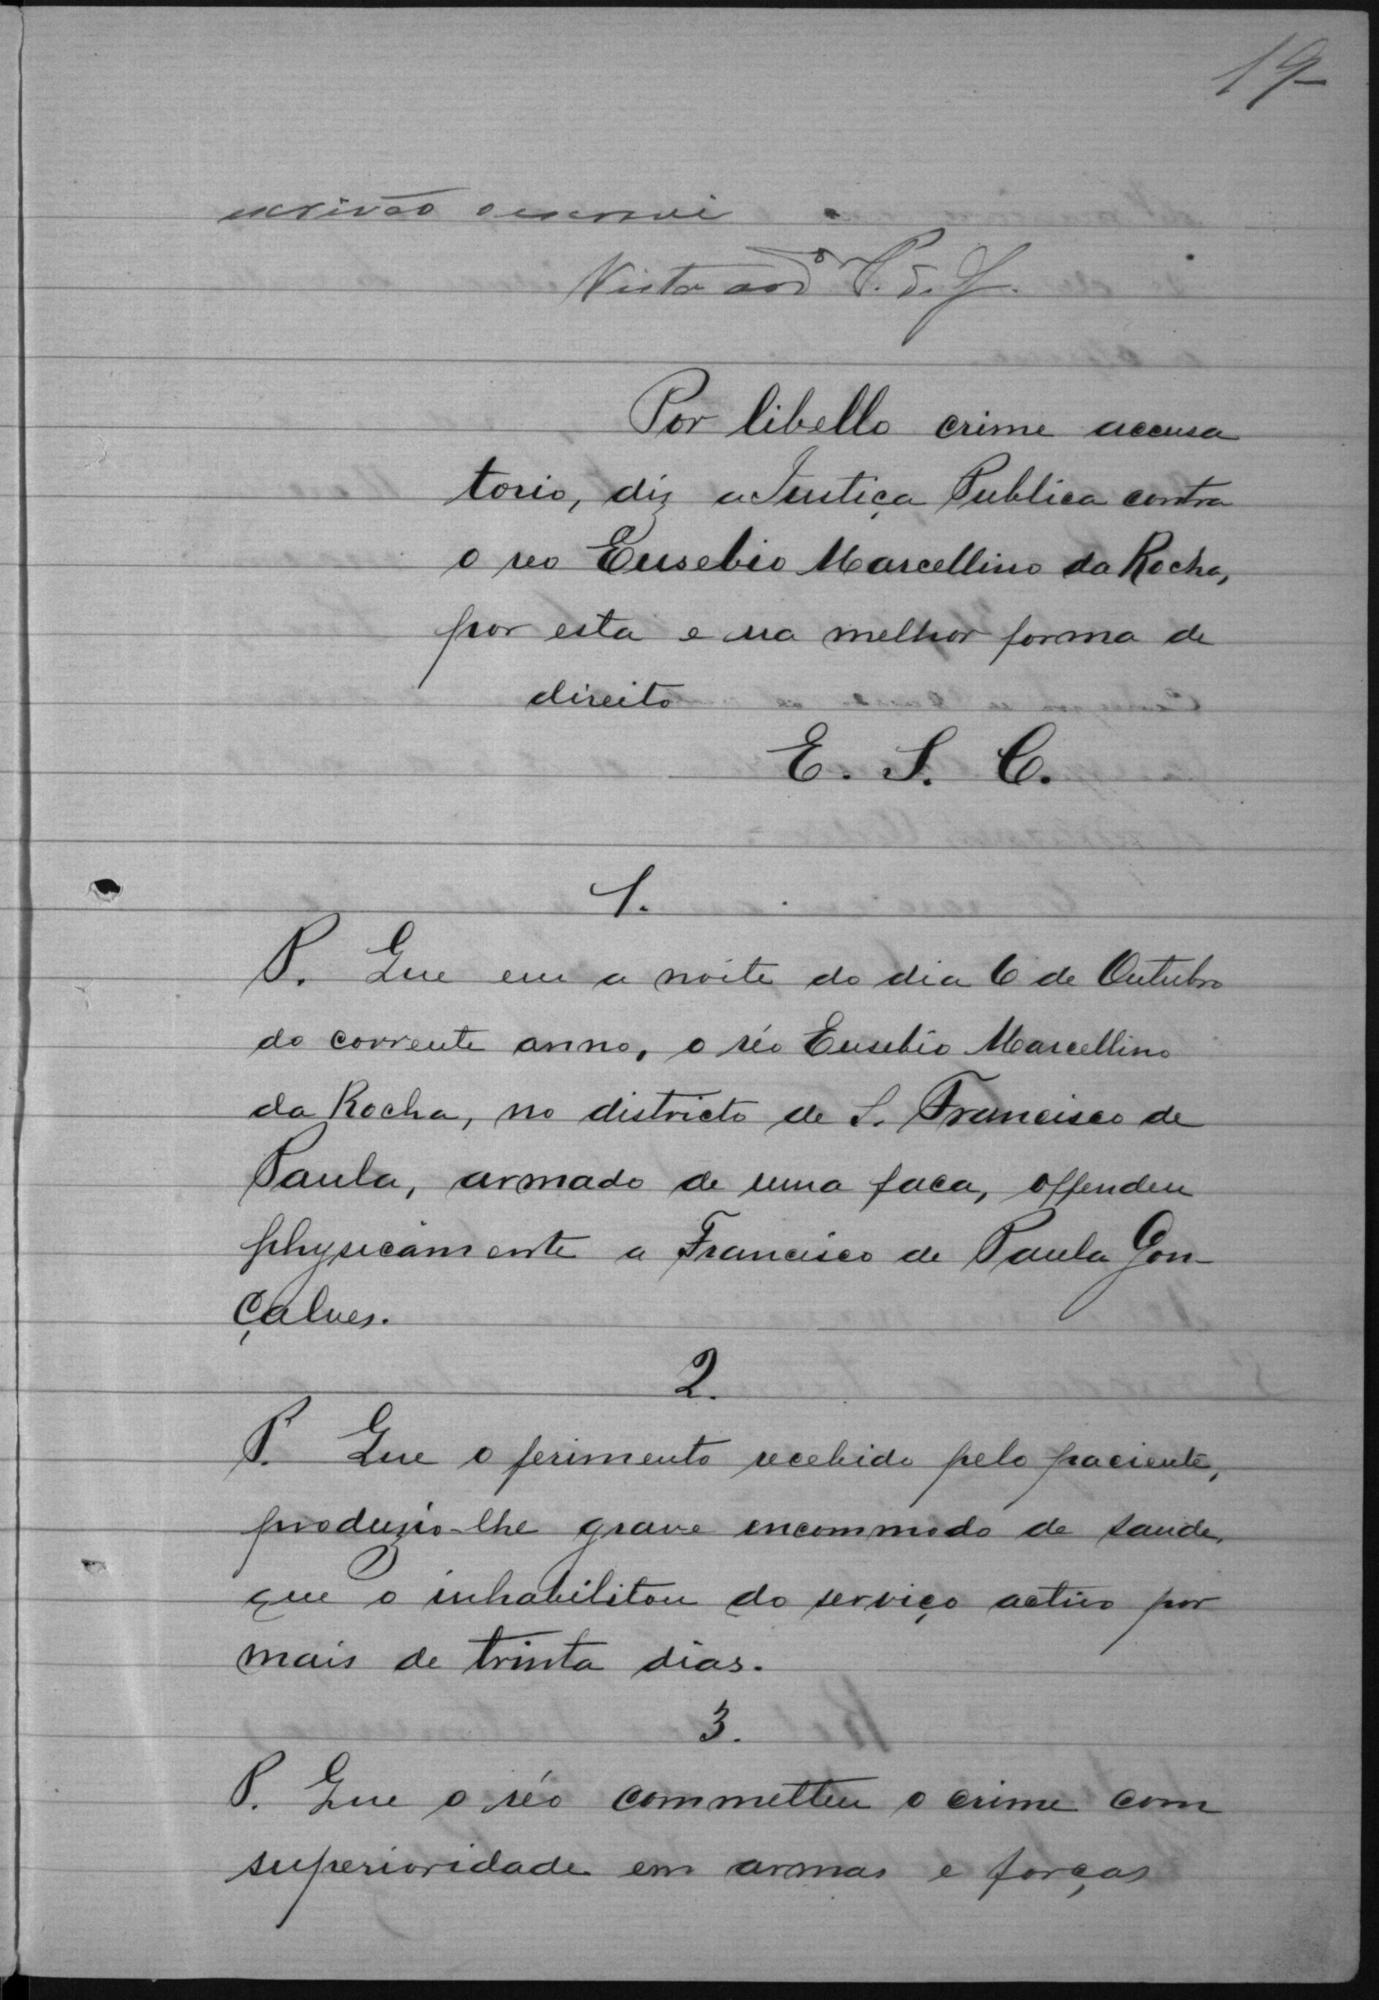 19
escrivão o escrevi
Vista ao D.r P. de J.
Por libello crime accusa
torio, diz a Justiça Publica contra
o reo Eusebio Marcellino da Rocha,
por esta e na melhor forma de
direito
E. S. C.
1.
P. Que em a noite do dia 6 de Outubro
do corrente anno, o réo Eusebio Marcellino
da Rocha, no districto de S. Francisco de
Paula, armado de uma faca, offendeu
physicamente a Francisco de Paula Gon-
çalves.
2.
P. Que o ferimento recebido pelo paciente,
produzio-lhe grave encommodo de saude,
que o inhabilitou do serviço activo por
mais de trinta dias.
3.
P. Que o réo commetteu o crime com
superioridade em armas e forças